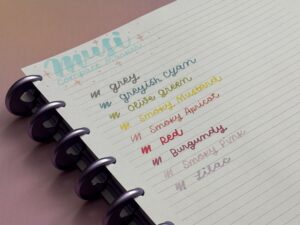 muji
grey
greyish cyan
olive green
Smoky Mustard
Smoky Apricot
Red
Burgundy
Smoky Pink
Lilac